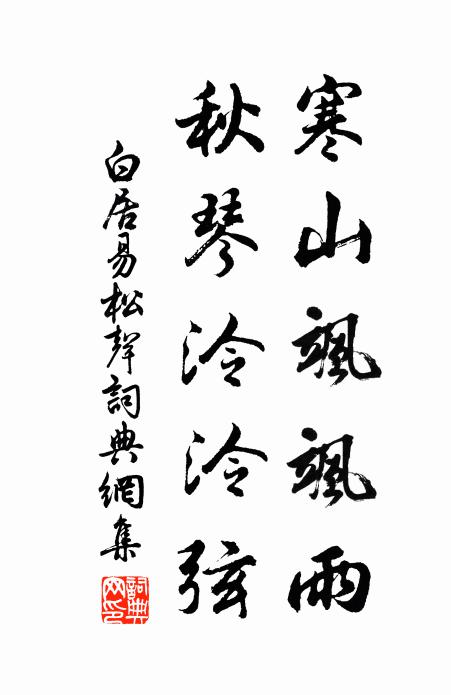 寒山颯颯雨
秋琴泠泠弦
白居易松聲詞典網集
詞典网印